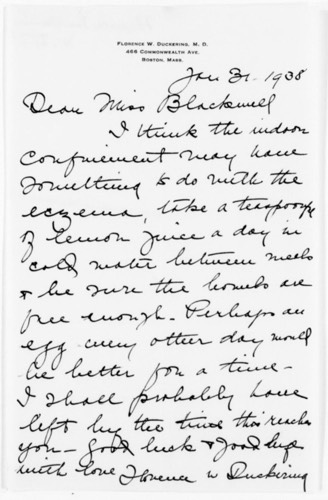 FLORENCE W. DUCKERING, M. D.
466 COMMONWEALTH AVE.
BOSTON, MASS.
Jan 31 - 1938
Dear Miss Blackwell
I think the indoor
confinement may have
something to do with the
eczema, take a teaspoonful
of lemon juice a day in
cold water between meals
& be sure the bowels are
free enough - Perhaps an
egg every other day would
be better for a time -
I shall probably have
left by the time this reaches
you - Good luck &
with love Florence W Duckering